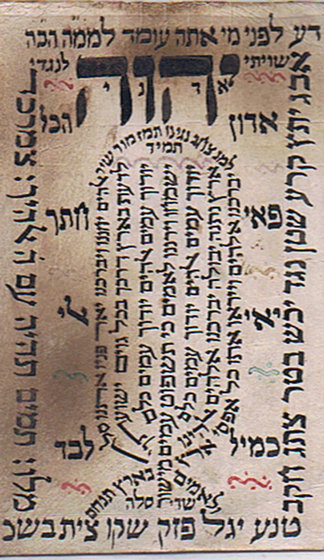 דע לפני מי אתה עומד לממה
שויתי יהוה לנגדי
א ד נ י
אדון הכל
תמיד
פאי חתך
כמיל לבד
אבג יתץ קרע שטן נגד יכש בטר צתג חקב
יברכנו אלהים וייראו אתו כל אפסי
ארץ נתנה יבולה יברכנו אלהים
יודוך עמים אלהים יודוך עמים כלם
ישמחו וירננו לאמים כי תשפט עמים מישור
ולאמים בארץ תנחם
סלה
יודוך עמים אלהים יודוך עמים כלם
לדעת בארץ דרכך בכל גוים ישועתך
אלהים יחננו ויברכנו יאר פניו אתנו סלה
תמים תהיה עם ה אלהיך
טנע יגל פזק שקו צית